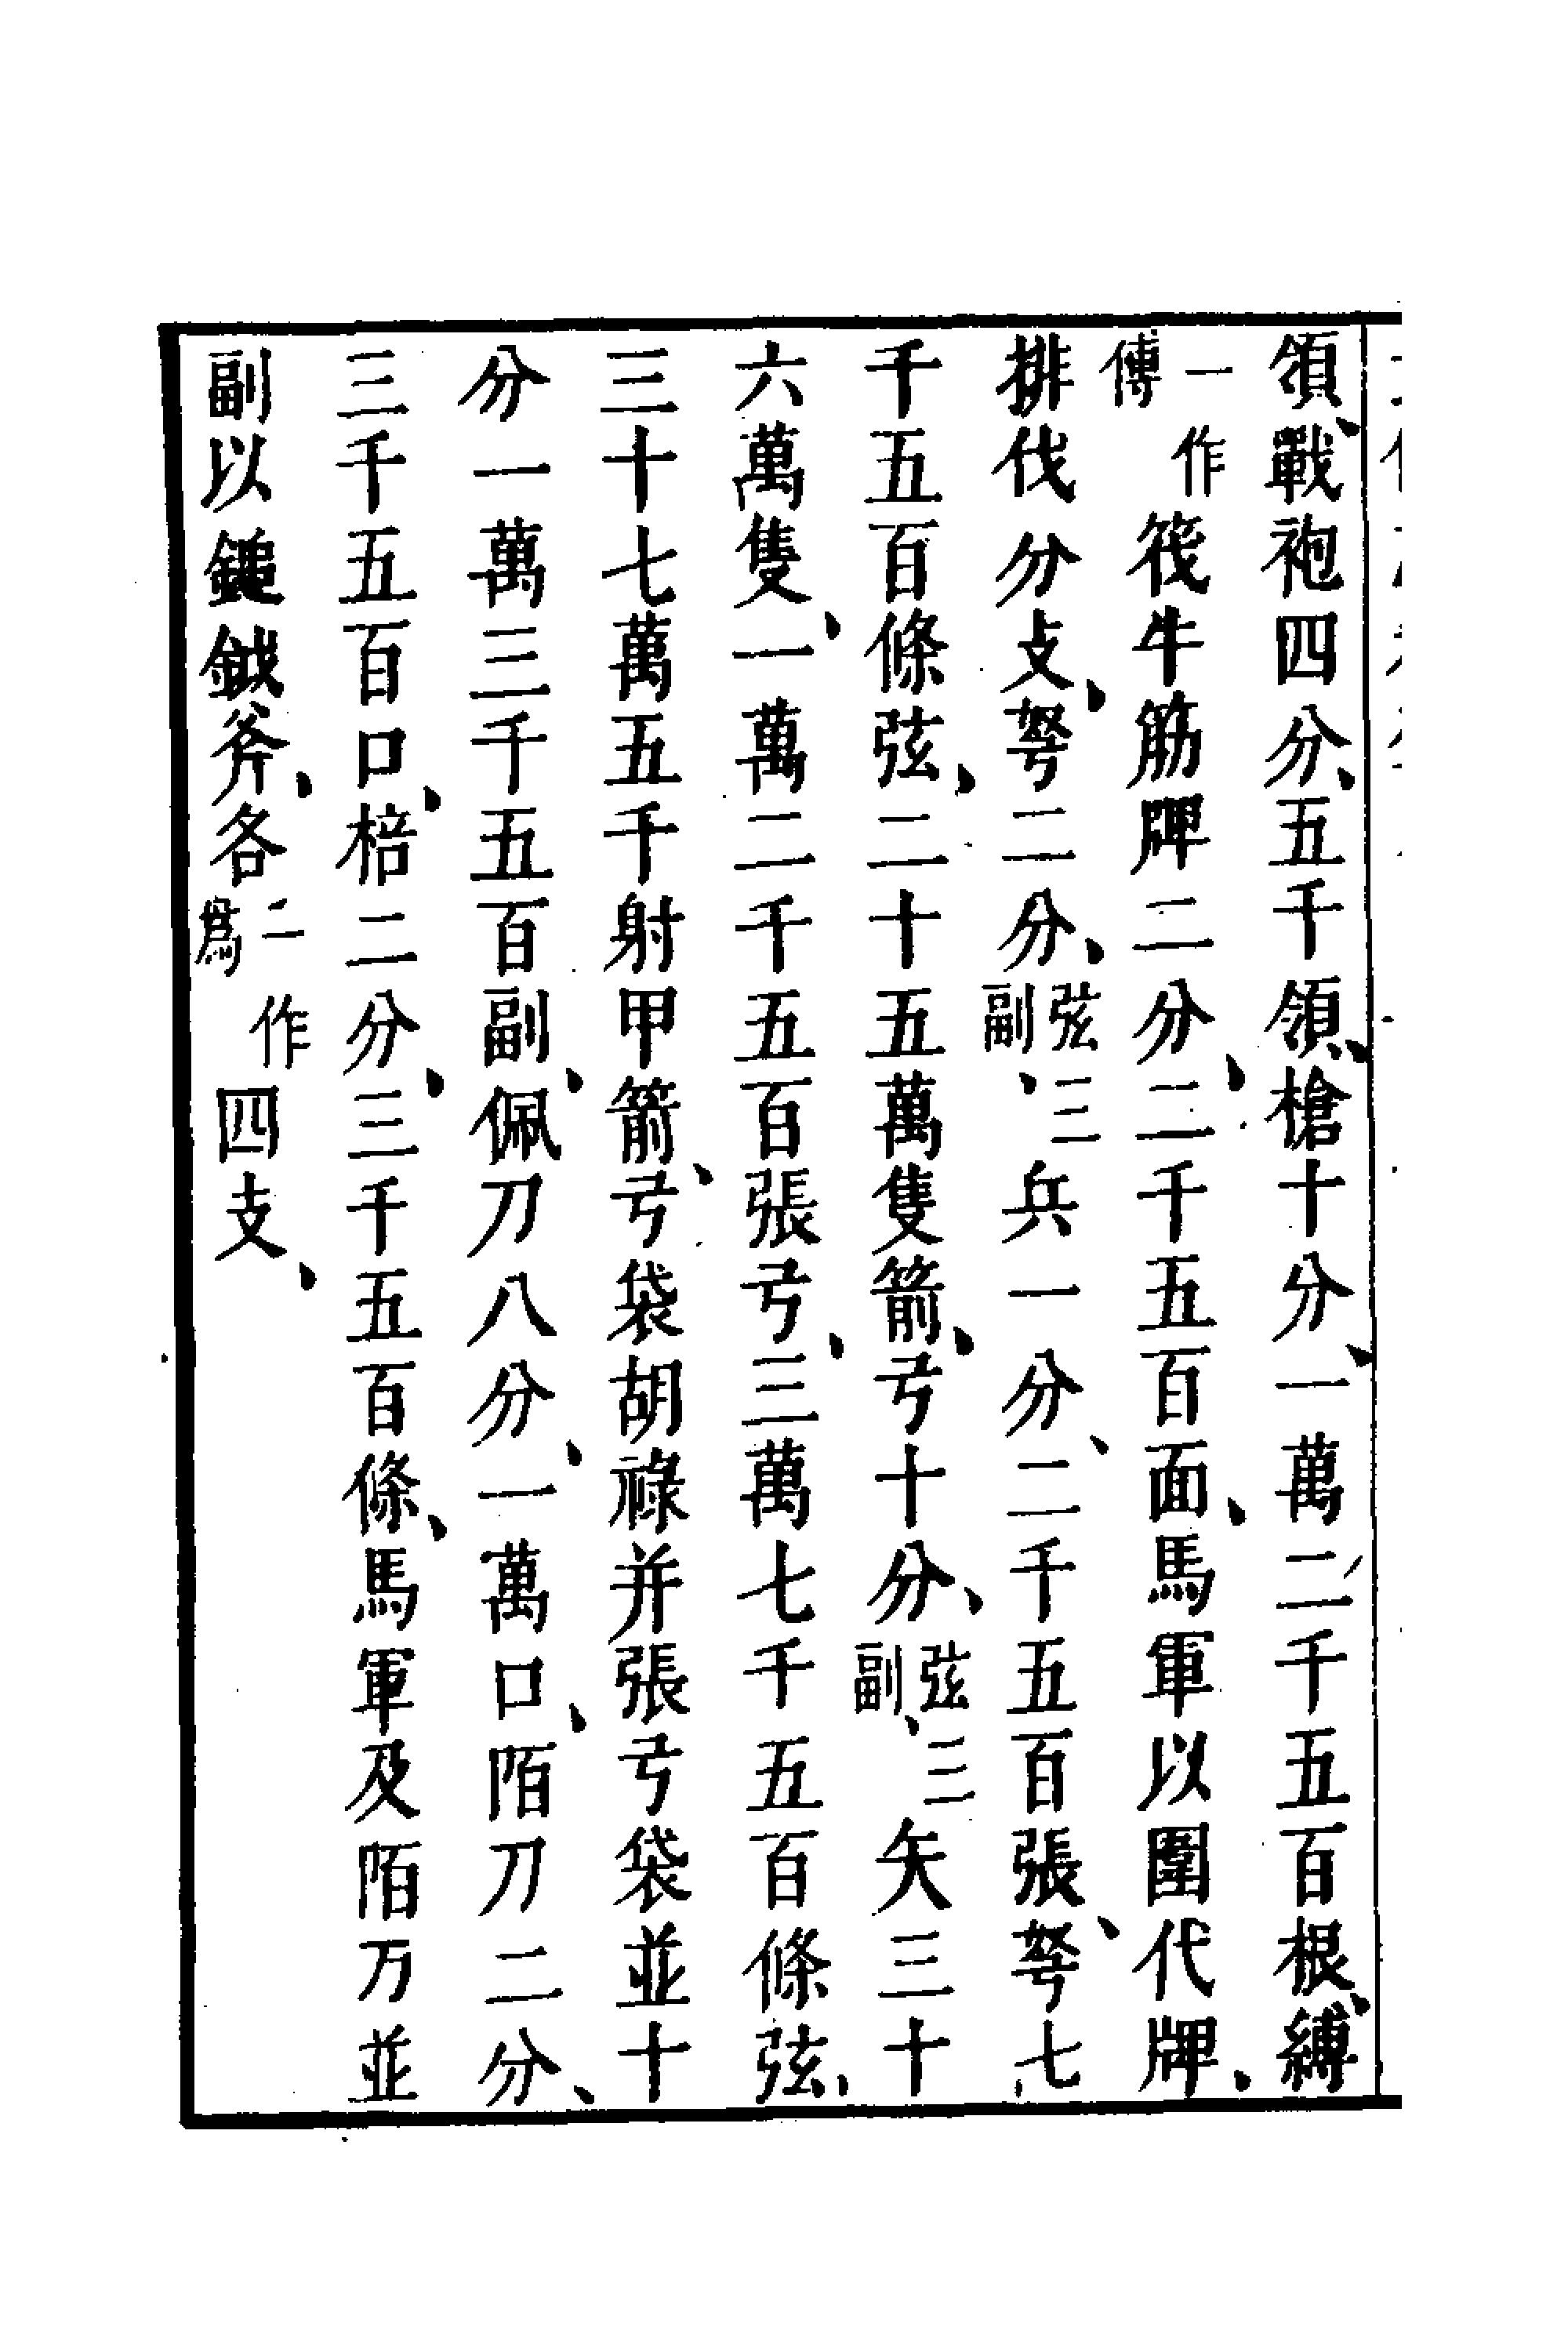 領、戰袍四分、五千領、槍十分、一萬二千五百根、縛
一作傳筏牛筋牌二分、二千五百面、馬軍以團代牌、
排伐分攴、弩二分、弦三副、兵一分、二千五百張、弩七
千五百條弦、二十五萬隻箭、弓十分、弦三副、矢三十
六萬隻、一萬二千五百張弓、三萬七千五百條弦、
三十七萬五千射甲箭、弓袋胡祿并張弓袋並十
分一萬三千五百副、佩刀八分、一萬口、陌刀二分、
三千五百口、棓二分、三千五百條、馬軍及陌刀並
副以鎚鉞斧、各二作爲四支、